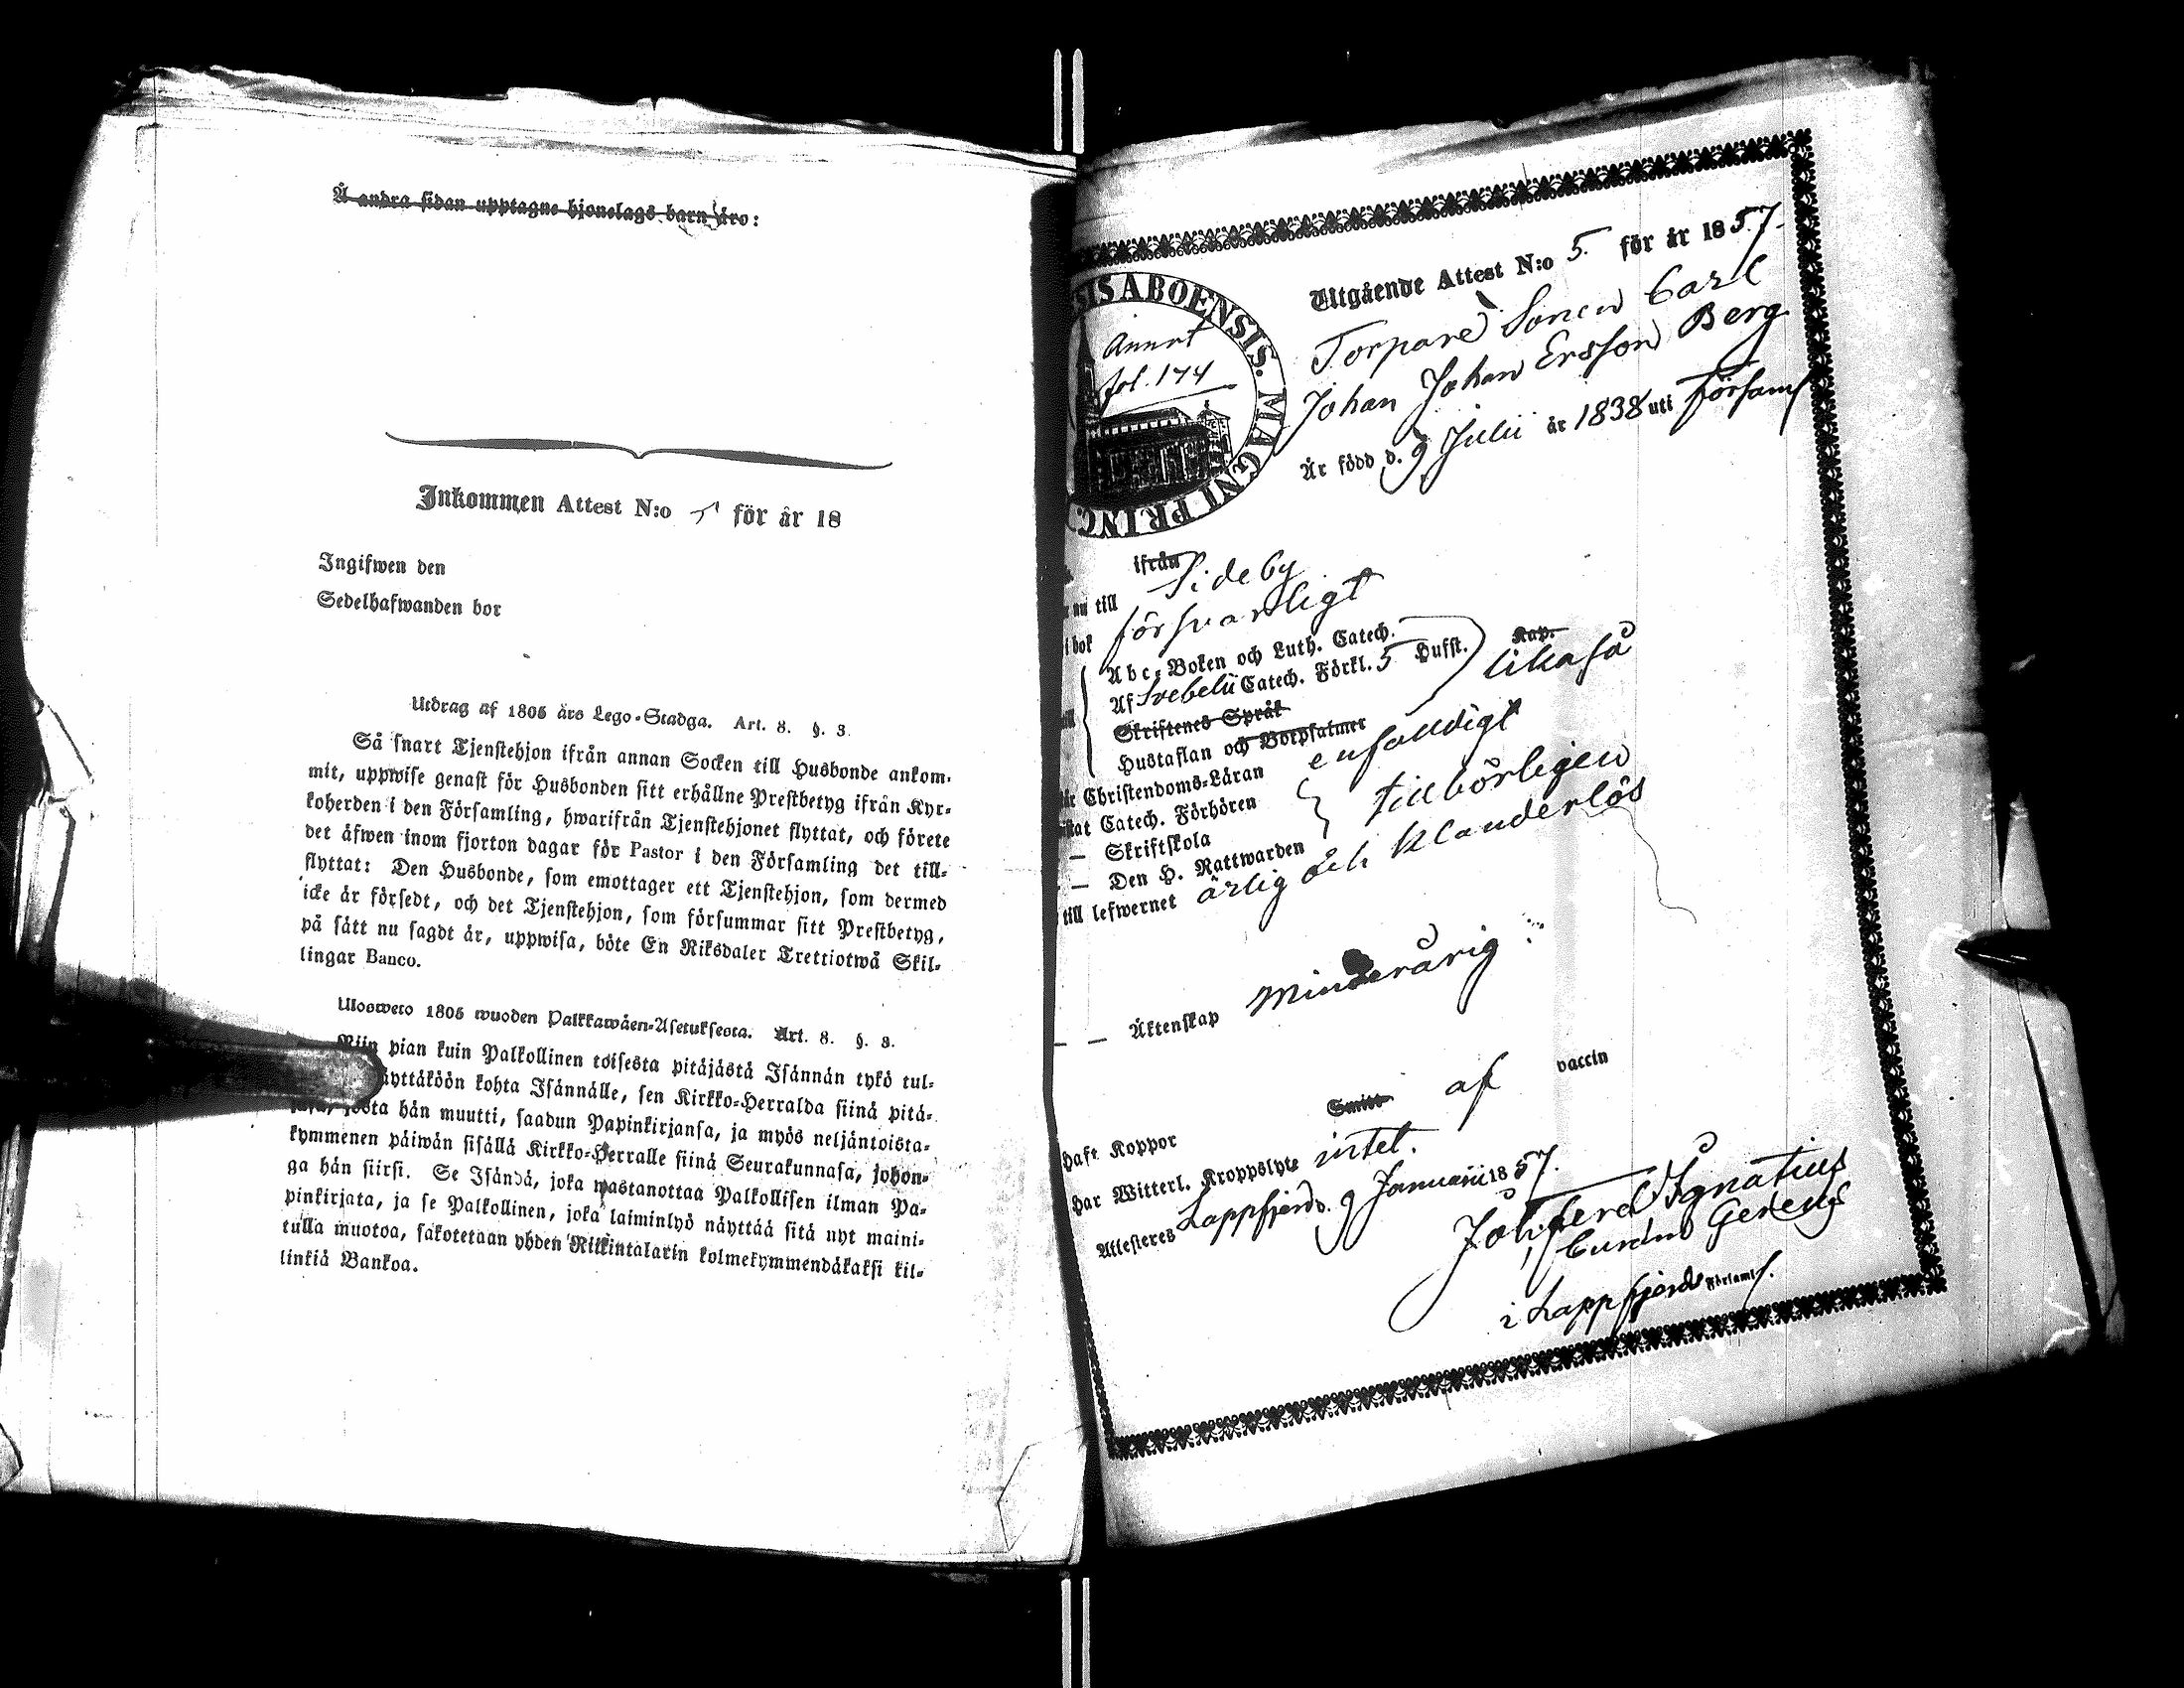 Å andra sidan upptagne hjonelags barn äro:
Inkommen Attest N:o 5 för år 18
Ingifwen den
Sedelhafwanden bor
Utdrag af 1805 års Lego-Stadga. Art. 8. §. 3.
Så snart Tjenstehjon ifrån annan Socken till Husbonde ankom-
mit, uppwise genast för Husbonden sitt erhållne Prestbetyg ifrån Kyr-
koherden i den Församling, hwarifrån Tjenstehjonet flyttat, och förete
det äfwen inom fjorton dagar för Pastor i den Församling det till-
flyttat: Den Husbonde, som emottager ett Tjenstehjon, som dermed
icke är försedt, och det Tjenstehjon, som försummar sitt Prestbetyg,
på sätt nu sagdt är, uppwisa, böte En Riksdaler Trettiotwå Skil-
lingar Banco.
Ulosweto 1805 wuoden Palkkawäen-Asetuksesta. Art. 8. §. 3.
Niin pian kuin Palkollinen toisesta pitäjästä Isännän tykö tul-
äyttäköön kohta Isännälle, sen Kirkko-Herralda siinä pitä-
josta hän muutti, saadun Papinkirjansa, ja myös neljäntoista-
kymmenen päiwän sisällä Kirkko-Herralle siinä Seurakunnasa, johon-
ga hän siirsi. Se Isändä, joka wastanottaa Palkollisen ilman Pa-
pinkirjata, ja se Palkollinen, joka laiminlyö näyttää sitä nyt maini-
tulla muotoa, sakotetaan yhden Riikintalarin kolmekymmendäkaksi kil-
linkiä Bankoa.
SIS ABOENSIS. MAGNI PRINC.
Annrt
fol. 174
Utgående Attest N:o 5. för år 1857.
Torpare Sonen Carl
Johan Johan Ersson Berg
Är född d. 9 Julii år 1838 uti Förs​aml
ifrån
nu till Sideby
i bok försvarligt
Abc-Boken och Luth. Catech.
Af Svebelii Catech. Förkl. 5 Hufst. Kap. likaså
Skriftenes Språk
Hustaflan och Botpsalmer
Christendoms-Läran enfaldigt
Catech. Förhören
— Skriftskola tillbörligen
— Den H. Nattwarden
till lefwernet ärlig och klanderlös
— — Äktenskap Minderårig
haft Koppor Smitt af vaccin
har Witterl. Kroppslyte intet.
Attesteres Lappfjerd d. 9 Januarii 1857.
Joh. Ferd Ignatius
i Lappfjerds Församl.